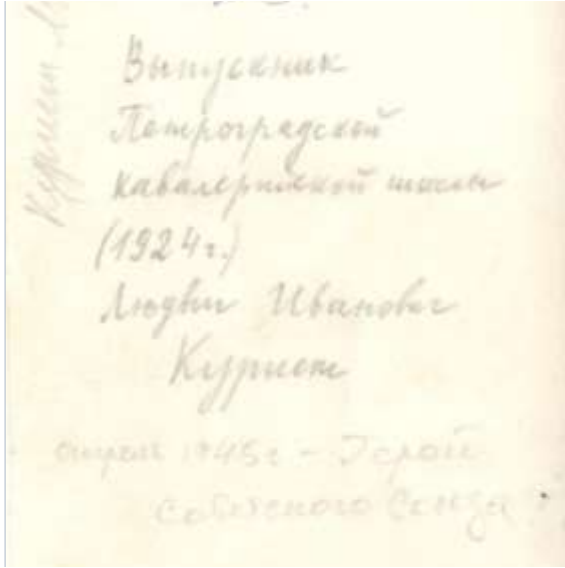 Выпускник
Петроградской
кавалерийской школы
(1924г.)
Людвиг Иванович
Курист
апрель 1945г - Герой
Советского Союза
Курист